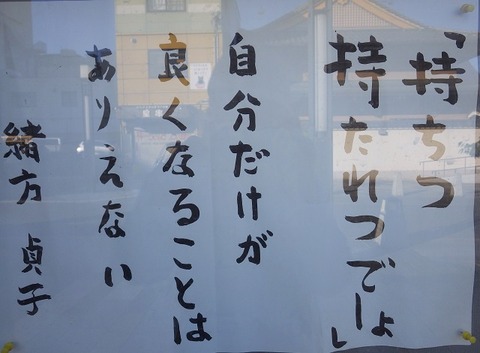 「持ちつ
持たれつでしょ」
自分だけが
良くなることは
ありえない
緒方 貞子